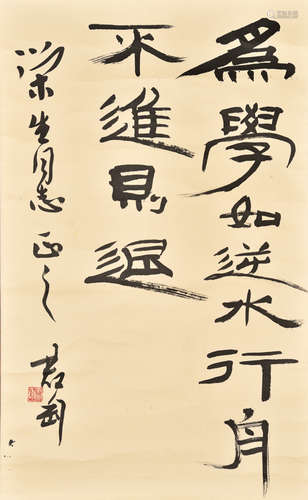 為學如逆水行舟
不進則退
荣生同志正之
君匋